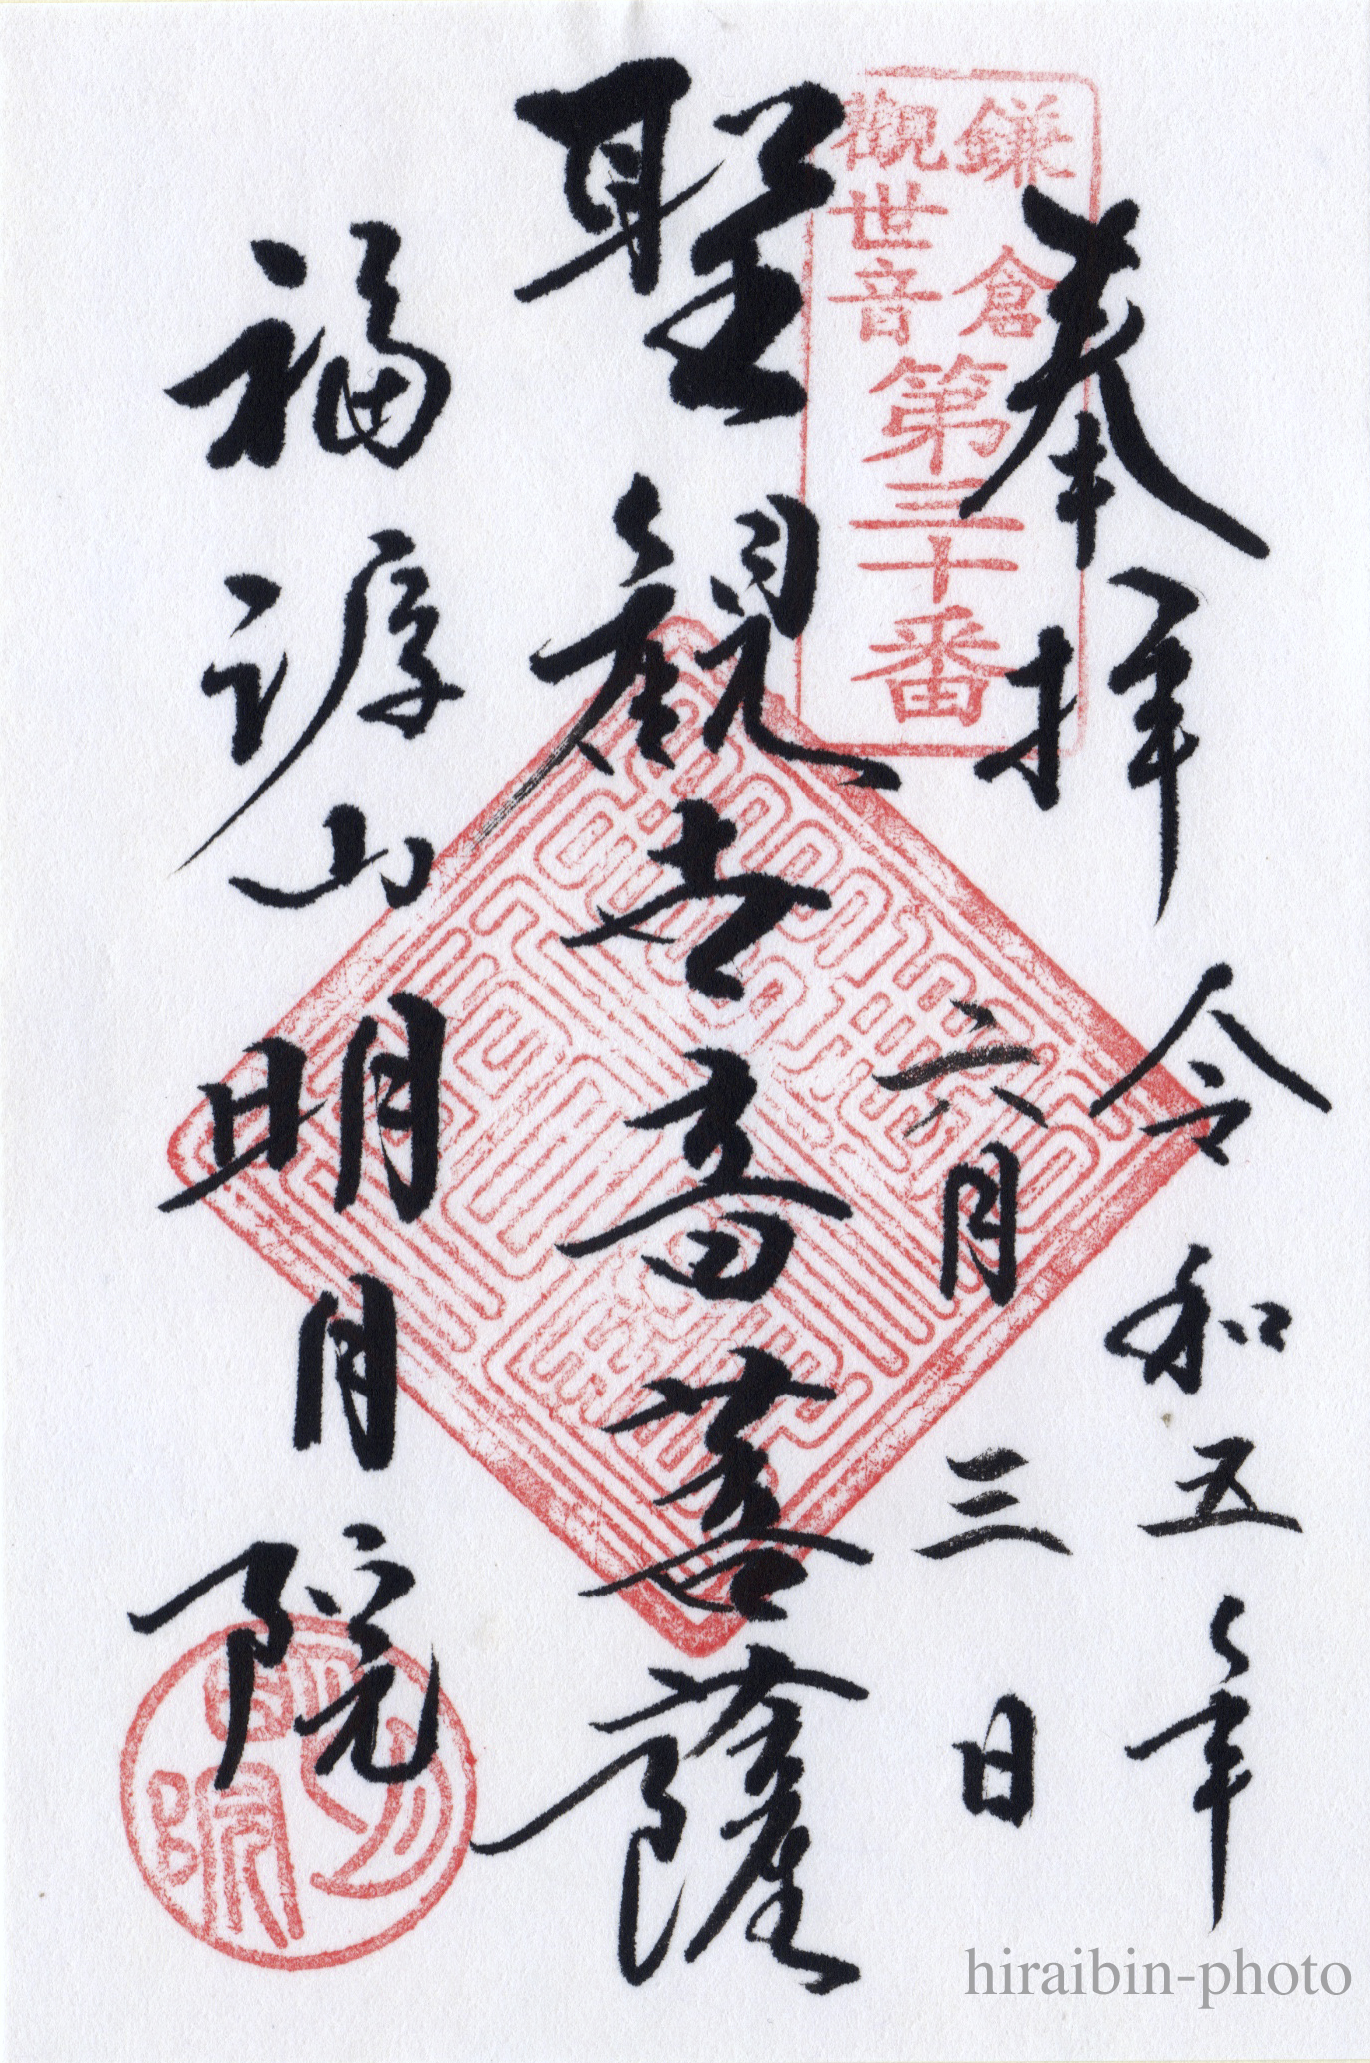 奉拝 令和五年
六月三日
鎌倉
觀世音
第三十番
聖観世音菩薩
福源山明月院
明月院
hiraibin-photo